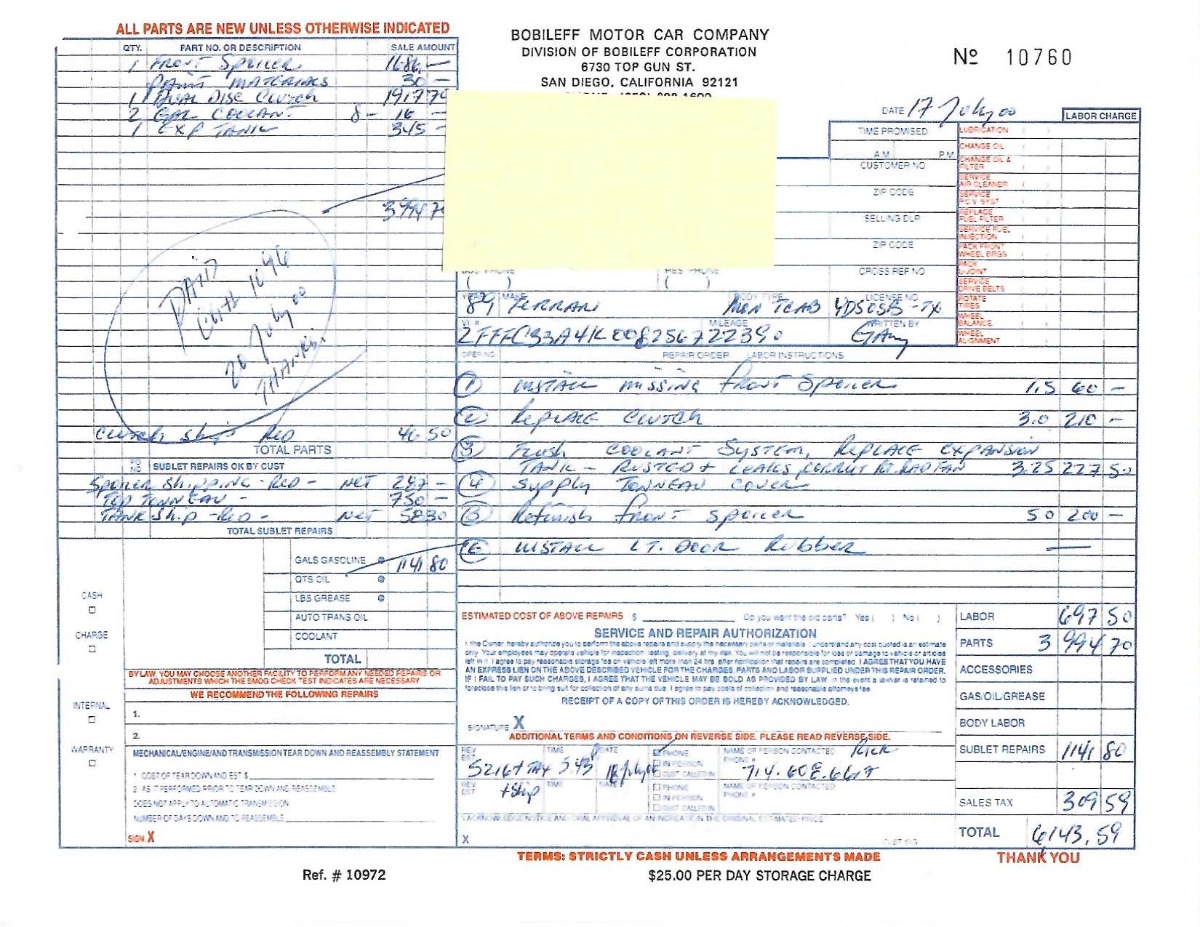 ALL PARTS ARE NEW UNLESS OTHERWISE INDICATED
QTY. PART NO. OR DESCRIPTION SALE AMOUNT
1 FRONT SPOILER 1686 —
PAINT MATERIALS 30 —
1 DUAL DISC CLUTCH 1917 70
2 GAL COOLANT 8- 16 —
1 EXP TANK 345 —
3994 70
PAID
with 1046
20 July 00
THANKS!
CLUTCH Ship RED 46 50
TOTAL PARTS
SUBLET REPAIRS OK BY CUST
Spoiler Shipping - RED - NET 287 —
TOP TONNEAU - 750 —
TANK Ship - RED - NET 58 30
TOTAL SUBLET REPAIRS
GALS GASOLINE @ 1141 80
QTS OIL @
LBS GREASE @
AUTO TRANS OIL
COOLANT
TOTAL
CASH
CHARGE
INTERNAL
WARRANTY
BY LAW, YOU MAY CHOOSE ANOTHER FACILITY TO PERFORM ANY NEEDED REPAIRS OR
ADJUSTMENTS WHICH THE SMOG CHECK TEST INDICATES ARE NECESSARY
WE RECOMMEND THE FOLLOWING REPAIRS
1.
2.
MECHANICAL/ENGINE/AND TRANSMISSION TEAR DOWN AND REASSEMBLY STATEMENT
1. COST OF TEAR DOWN AND EST $
2. AS IT PERFORMED PRIOR TO TEAR DOWN AND REASSEMBLE
DOES NOT APPLY TO AUTOMATIC TRANSMISSION
NUMBER OF DAYS DOWN AND TO REASSEMBLE
SIGN X
BOBILEFF MOTOR CAR COMPANY
DIVISION OF BOBILEFF CORPORATION
6730 TOP GUN ST.
SAN DIEGO, CALIFORNIA 92121
No 10760
DATE 17 July 00
LABOR CHARGE
TIME PROMISED
A.M. P.M.
CUSTOMER NO
ZIP CODE
SELLING DLR
ZIP CODE
CROSS REF NO
LUBRICATION
CHANGE OIL
CHANGE OIL & FILTER
SERVICE AIR CLEANER
SERVICE P.C.V. SYST
REPLACE FUEL FILTER
SERVICE FUEL INJECTION
PACK FRONT WHEEL BRGS
PACK U-JOINT
SERVICE DRIVE BELTS
ROTATE TIRES
WHEEL BALANCE
WHEEL ALIGNMENT
BUS PHONE RES PHONE
YEAR MAKE BODY TYPE LICENSE NO
89 FERRARI MON T CAB YDS05B-TX
MILEAGE WRITTEN BY
22390 Gary
REPAIR ORDER LABOR INSTRUCTIONS
1 INSTALL MISSING FRONT SPOILER 1.5 60 —
2 REPLACE CLUTCH 3.0 210 —
3 FLUSH COOLANT SYSTEM, REPLACE EXPANSION
TANK - RUSTED + LEAKS 3.25 227 50
4 SUPPLY TONNEAU COVER
5 REFINISH FRONT SPOILER 50 200 —
6 INSTALL LT. DOOR RUBBER —
ESTIMATED COST OF ABOVE REPAIRS $ Do you want the old parts? Yes ( ) No ( )
SERVICE AND REPAIR AUTHORIZATION
I, the Owner, hereby authorize you to perform the above repairs and supply the necessary parts or materials. I understand any cost quoted is an estimate
only. Your employees may operate vehicle for inspection, testing, delivery at my risk. You will not be responsible for loss or damage to vehicle or articles
left in it. I agree to pay reasonable storage fee on vehicle left more than 24 hrs. after notification that repairs are completed. I AGREE THAT YOU HAVE
AN EXPRESS LIEN ON THE ABOVE DESCRIBED VEHICLE FOR THE CHARGES, PARTS AND LABOR SUPPLIED UNDER THIS REPAIR ORDER.
IF I FAIL TO PAY SUCH CHARGES, I AGREE THAT THE VEHICLE MAY BE SOLD AS PROVIDED BY LAW. In the event a lawyer is referred to
foreclose this lien or to bring suit for collection of any sums due, I agree to pay costs of collection and reasonable attorneys fee.
RECEIPT OF A COPY OF THIS ORDER IS HEREBY ACKNOWLEDGED.
SIGNATURE X
ADDITIONAL TERMS AND CONDITIONS ON REVERSE SIDE. PLEASE READ REVERSE SIDE.
REV EST TIME DATE PHONE NAME OF PERSON CONTACTED Rick
5216 + TAX 3:43 IN PERSON PHONE #
+ Ship CUST CALLED IN
REV EST TIME DATE PHONE NAME OF PERSON CONTACTED
IN PERSON PHONE #
CUST CALLED IN
I ACKNOWLEDGE NOTICE AND ORAL APPROVAL OF AN INCREASE IN THE ORIGINAL ESTIMATED PRICE
X CUST SIG
LABOR 697 50
PARTS 3 994 70
ACCESSORIES
GAS/OIL/GREASE
BODY LABOR
SUBLET REPAIRS 1141 80
SALES TAX 309 59
TOTAL 6143.59
TERMS: STRICTLY CASH UNLESS ARRANGEMENTS MADE
THANK YOU
Ref. # 10972
$25.00 PER DAY STORAGE CHARGE